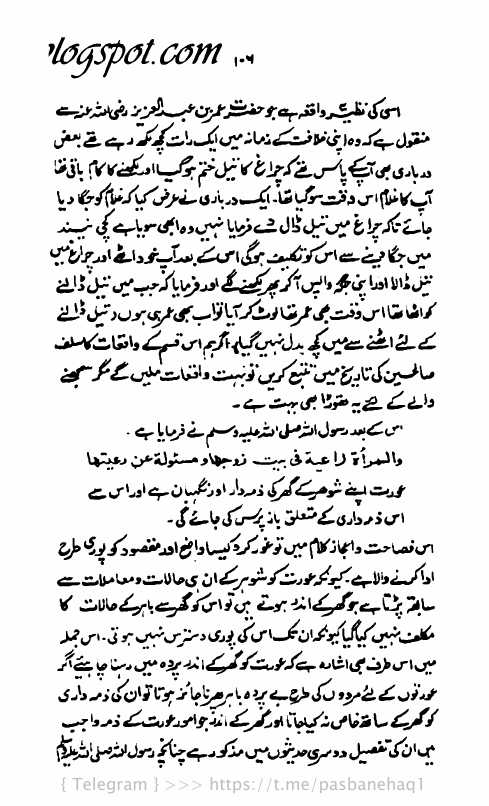 logspot.com ۱۰۶
اسی کی نظیر یہ واقعہ ہے جو حضرت عمر بن عبدالعزیز رضی اللہ عنہ سے
منقول ہے کہ وہ اپنی خلافت کے زمانہ میں ایک رات کچھ لکھ رہے تھے بعض
درباری بھی آپ کے پاس تھے کہ چراغ کا تیل ختم ہو گیا اور لکھنے کا کام باقی تھا
آپ کا غلام اس وقت سو گیا تھا۔ ایک درباری نے عرض کیا کہ غلام کو جگا دیا
جائے تاکہ چراغ میں تیل ڈال دے فرمایا نہیں وہ ابھی سویا ہے کچی نیند
میں جگا دینے سے اس کو تکلیف ہوگی اس کے بعد آپ خود اٹھے اور چراغ میں
تیل ڈالا اور اپنی جگہ واپس آ کر پھر لکھنے لگے اور فرمایا کہ جب میں تیل ڈالنے
کو اٹھا تھا اس وقت بھی عمر تھا لوٹ کر آیا تو اب بھی عمر ہی ہوں تیل ڈالنے
کے لئے اٹھنے سے میں کچھ بدل نہیں گیا۔ اگر ہم اس قسم کے واقعات کا سلف
صالحین کی تاریخ میں تتبع کریں تو بہت واقعات ملیں گے مگر سمجھنے
والے کے لئے یہ تھوڑا بھی بہت ہے۔
اس کے بعد رسول اللہ صلی اللہ علیہ وسلم نے فرمایا ہے۔
والمرأة راعية فى بيت زوجها و مسئولة عن رعيتها
عورت اپنے شوہر کے گھر کی ذمہ دار اور نگہبان ہے اور اس سے
اس ذمہ داری کے متعلق باز پرس کی جائے گی۔
اس فصاحت و اعجاز کلام میں تو غور کرو کیسا واضح اور مقصود کو پوری طرح
ادا کرنے والا ہے۔ کیونکہ عورت کو شوہر کے ان ہی حالات و معاملات سے
سابقہ پڑتا ہے جو گھر کے اندر ہوتے ہیں تو اس کو گھر سے باہر کے حالات کا
مکلف نہیں کیا گیا کیونکہ ان تک اس کی پوری دسترس نہیں ہوتی۔ اس جملہ
میں اس طرف بھی اشارہ ہے کہ عورت کو گھر کے اندر پردہ میں رہنا چاہیئے اگر
عورتوں کے لئے مردوں کی طرح بے پردہ باہر پھرنا جائز ہوتا تو ان کی ذمہ داری
کو گھر کے ساتھ خاص نہ کیا جاتا اور گھر کے اندر جو امور عورت کے ذمہ واجب
ہیں ان کی تفصیل دوسری حدیثوں میں مذکور ہے چنانچہ رسول اللہ صلی اللہ علیہ وسلم
{ Telegram } >>> https://t.me/pasbanehaq1